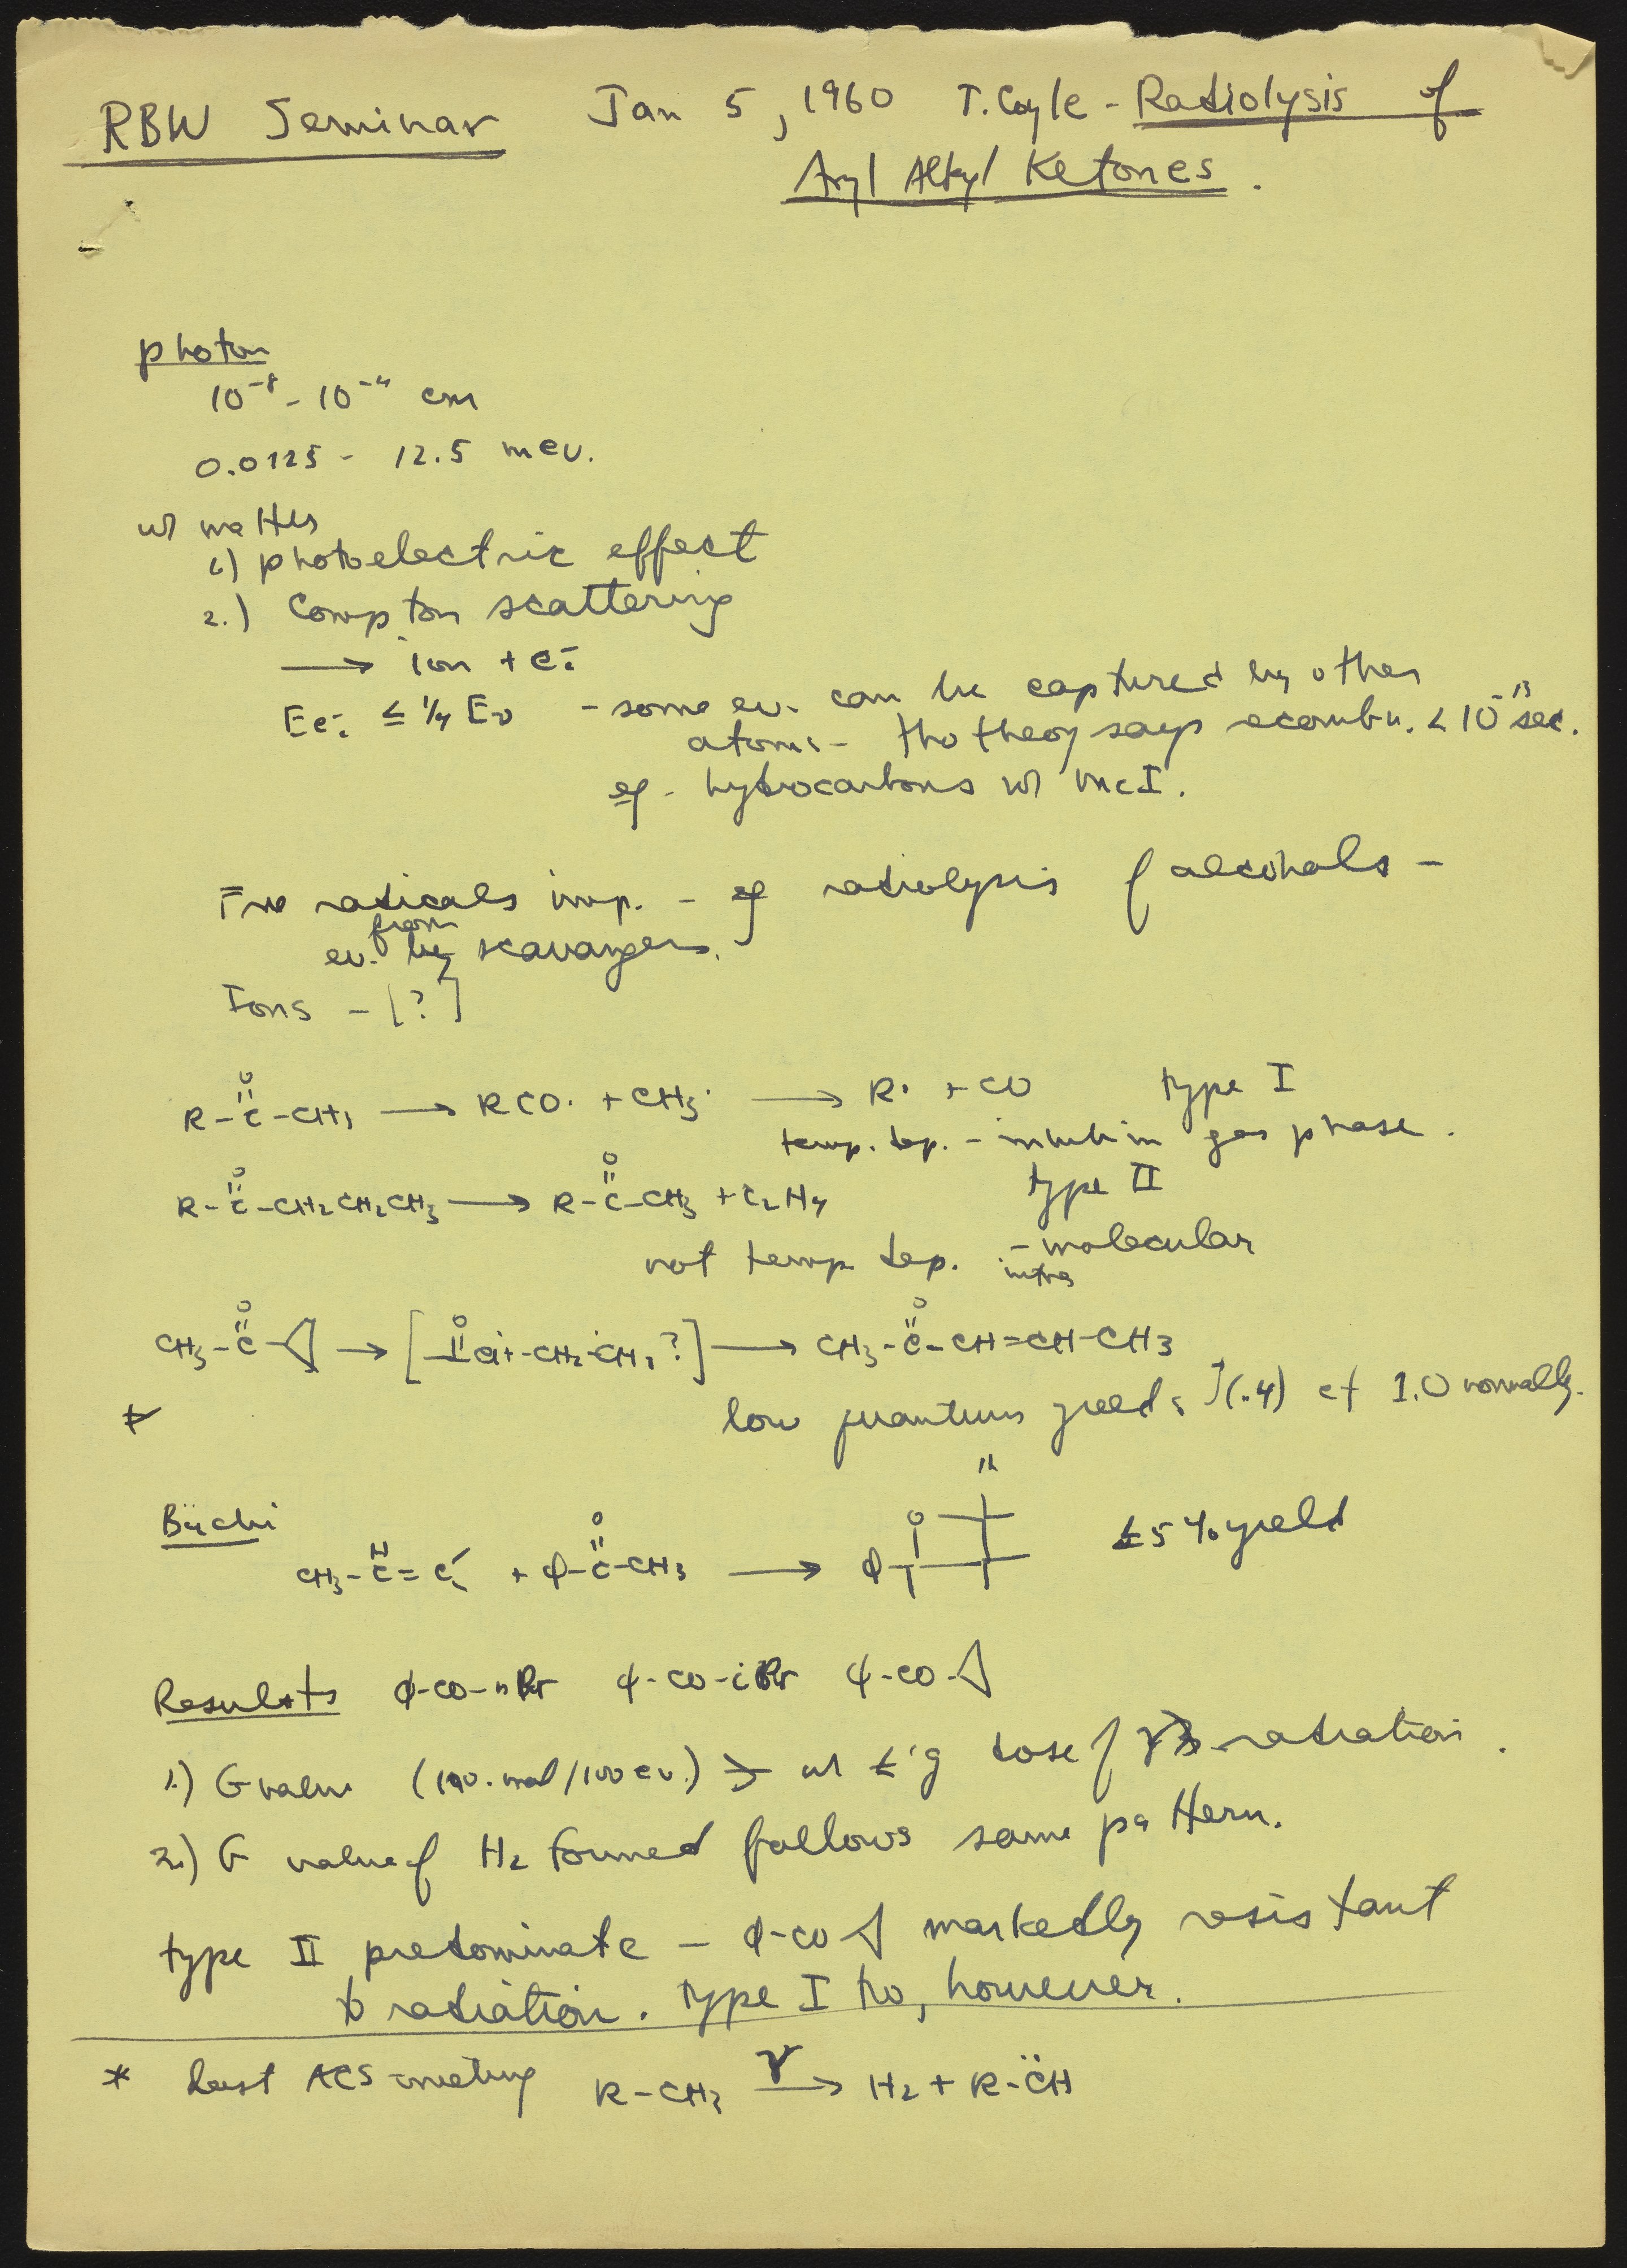 RBW Seminar Jan 5, 1960 T. Coyle - Radiolysis of
Aryl Alkyl Ketones.
photon
10⁻⁸ - 10⁻⁴ cm
0.0125 - 12.5 mev.
w/ matter
1.) photoelectric effect
2.) Compton scattering
→ ion + e⁻
- some ev. can be captured by other
atoms - tho theory says recombn. < 10⁻¹³ sec.
eg - hydrocarbons w/ MeI.
Free radicals imp. - eg radiolysis of alcohols -
ev. from by scavangers.
Ions - [?]
R-C(=O)-CH₃ → RCO· + CH₃· → R· + CO type I
temp. dep. - in gas phase.
type II
R-C(=O)-CH₂CH₂CH₃ → R-C(=O)-CH₃ + C₂H₄
not temp dep. - intramolecular
CH₃-C(=O)-◁ → [ ?] → CH₃-C(=O)-CH=CH-CH₃
low quantum yields (.4) cf 1.0 normally.
Büchi
CH₃-CH=C + φ-C(=O)-CH₃ → φ
5% yield
Results φ-CO-nPr φ-CO-iPr φ-CO-◁
1.) G value (no. mol/100 ev.) w/ dose of γ radiation.
2.) G value of H₂ formed follows same pattern.
type II predominate - φ-CO-◁ markedly resistant
to radiation. type I no, however.
* Last ACS meeting R-CH₃ →(γ) H₂ + R-C̈H